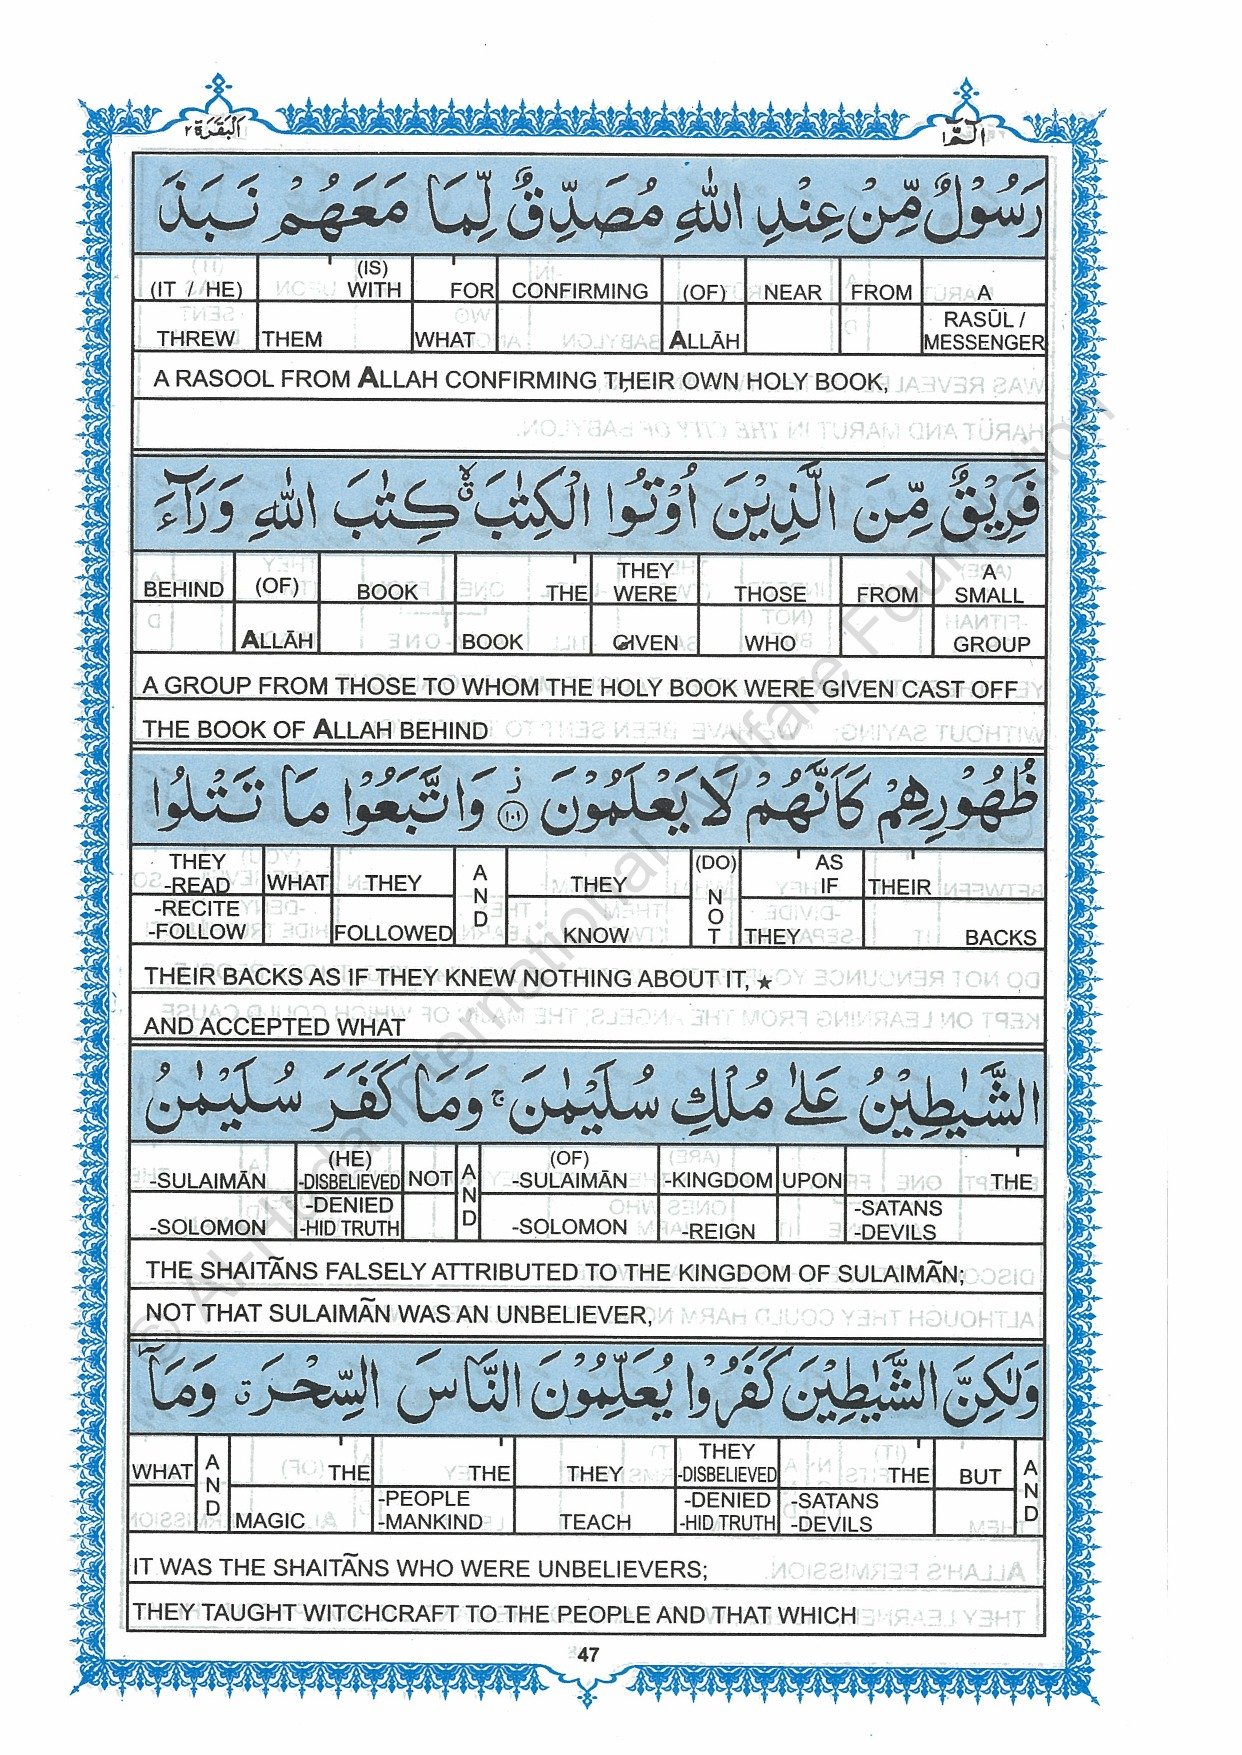 الٓمّٓ ١
اَلْبَقَرَة ٢
رَسُوْلٌ مِّنْ عِنْدِ اللّٰهِ مُصَدِّقٌ لِّمَا مَعَهُمْ نَبَذَ
(IT / HE) (IS) WITH FOR CONFIRMING (OF) NEAR FROM A
THREW THEM WHAT ALLĀH RASŪL / MESSENGER
A RASOOL FROM ALLAH CONFIRMING THEIR OWN HOLY BOOK,
فَرِيْقٌ مِّنَ الَّذِيْنَ اُوْتُوا الْكِتٰبَ ۙۗ كِتٰبَ اللّٰهِ وَرَآءَ
BEHIND (OF) BOOK THE THEY WERE THOSE FROM A SMALL
ALLĀH BOOK GIVEN WHO GROUP
A GROUP FROM THOSE TO WHOM THE HOLY BOOK WERE GIVEN CAST OFF
THE BOOK OF ALLAH BEHIND
ظُهُوْرِهِمْ كَاَنَّهُمْ لَا يَعْلَمُوْنَ ز ١٠١ وَاتَّبَعُوْا مَا تَتْلُوا
THEY -READ WHAT THEY AND THEY (DO) NOT AS IF THEIR
-RECITE -FOLLOW FOLLOWED KNOW THEY BACKS
THEIR BACKS AS IF THEY KNEW NOTHING ABOUT IT, ★
AND ACCEPTED WHAT
الشَّيٰطِيْنُ عَلٰى مُلْكِ سُلَيْمٰنَ ۚ وَمَا كَفَرَ سُلَيْمٰنُ
-SULAIMĀN (HE) -DISBELIEVED NOT AND (OF) -SULAIMĀN -KINGDOM UPON THE
-SOLOMON -DENIED -HID TRUTH -SOLOMON -REIGN -SATANS -DEVILS
THE SHAITÃNS FALSELY ATTRIBUTED TO THE KINGDOM OF SULAIMÃN;
NOT THAT SULAIMÃN WAS AN UNBELIEVER,
وَلٰكِنَّ الشَّيٰطِيْنَ كَفَرُوْا يُعَلِّمُوْنَ النَّاسَ السِّحْرَ ق وَمَآ
WHAT AND THE THE THEY THEY -DISBELIEVED THE BUT AND
MAGIC -PEOPLE -MANKIND TEACH -DENIED -HID TRUTH -SATANS -DEVILS
IT WAS THE SHAITÃNS WHO WERE UNBELIEVERS;
THEY TAUGHT WITCHCRAFT TO THE PEOPLE AND THAT WHICH
47
© Al-Huda International Welfare Foundation